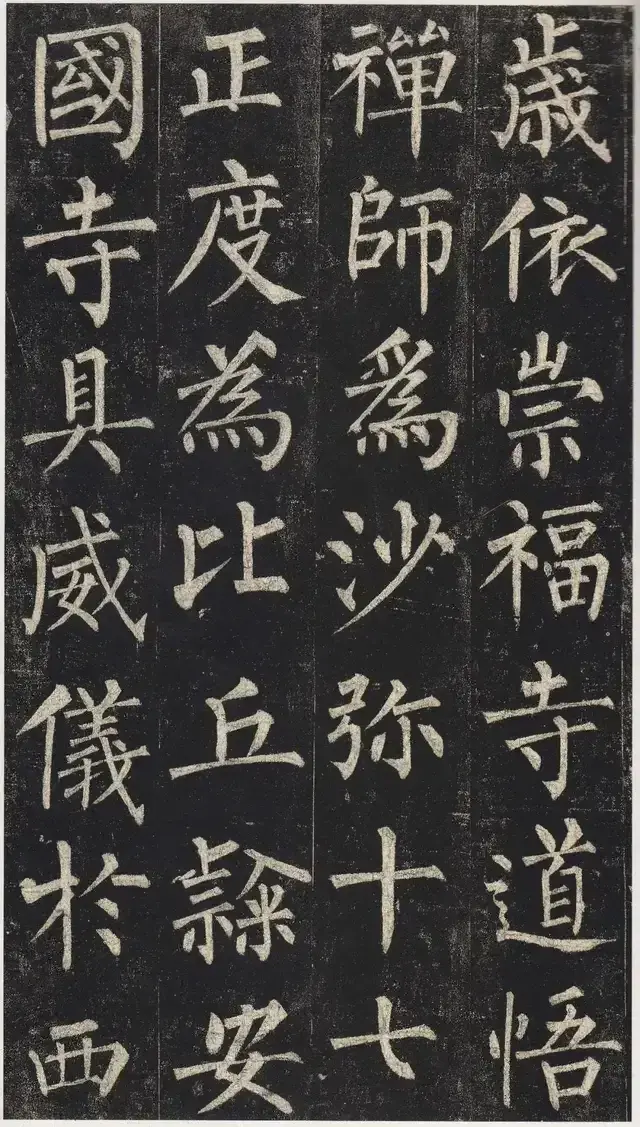 歳依崇福寺道悟
禪師爲沙弥十七
正度為比丘䜅安
國寺具威儀於西